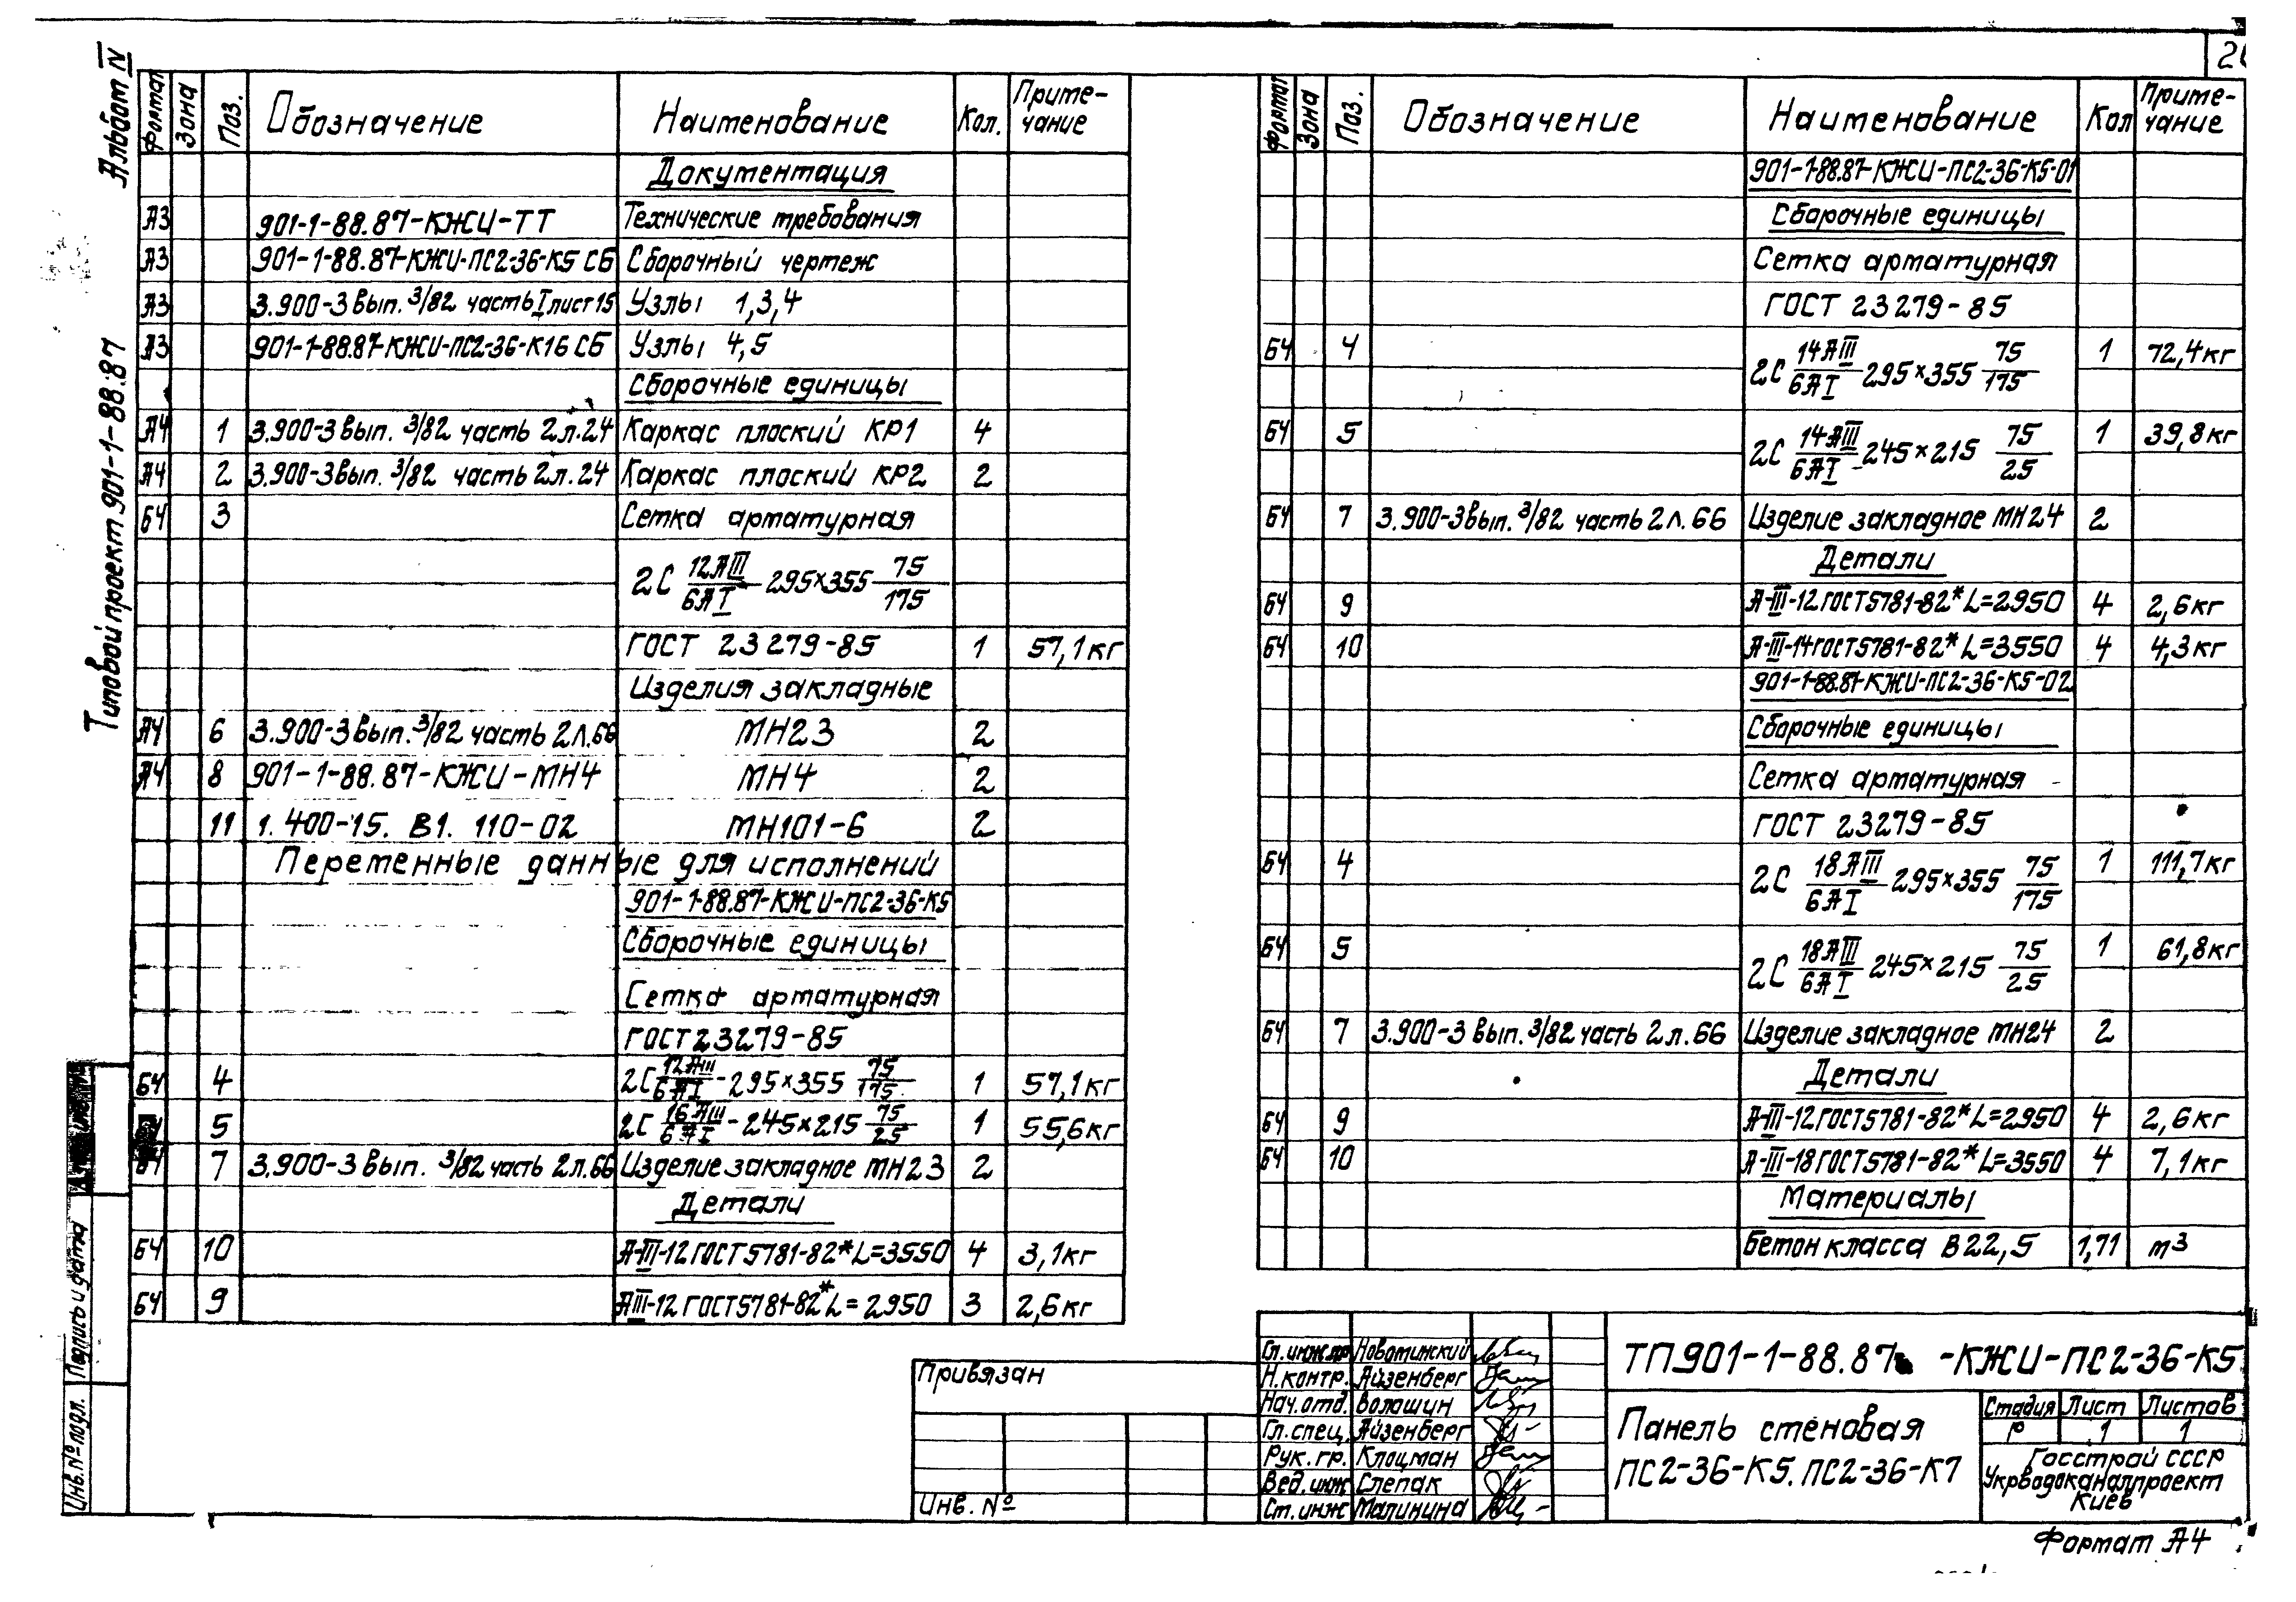 Альбом IV
Типовой проект 901-1-88.87
Формат Зона Поз. Обозначение Наименование Кол. Примечание
Документация
А3 901-1-88.87-КЖИ-ТТ Технические требования
А3 901-1-88.87-КЖИ-ПС2-36-К5 СБ Сборочный чертеж
А3 3.900-3 вып. 3/82 часть I лист 15 Узлы 1,3,4
А3 901-1-88.87-КЖИ-ПС2-36-К16 СБ Узлы 4,5
Сборочные единицы
А4 1 3.900-3 вып. 3/82 часть 2 л.24 Каркас плоский КР1 4
А4 2 3.900-3 вып. 3/82 часть 2 л.24 Каркас плоский КР2 2
БЧ 3 Сетка арматурная
2С 12АIII/6АI - 295×355 75/175
ГОСТ 23279-85 1 57,1 кг
Изделия закладные
А4 6 3.900-3 вып. 3/82 часть 2 л.66 МН23 2
А4 8 901-1-88.87-КЖИ-МН4 МН4 2
11 1.400-15. В1. 110-02 МН101-6 2
Переменные данные для исполнений
901-1-88.87-КЖИ-ПС2-36-К5
Сборочные единицы
Сетка арматурная
ГОСТ 23279-85
БЧ 4 2С 12АIII/6АI - 295×355 75/175 1 57,1 кг
5 2С 16АIII/6АI - 245×215 75/25 1 55,6 кг
7 3.900-3 вып. 3/82 часть 2 л.66 Изделие закладное МН23 2
Детали
БЧ 10 А-III-12 ГОСТ 5781-82* L=3550 4 3,1 кг
БЧ 9 АIII-12 ГОСТ 5781-82* L=2950 3 2,6 кг
Формат Зона Поз. Обозначение Наименование Кол Примечание
901-1-88.87-КЖИ-ПС2-36-К5-01
Сборочные единицы
Сетка арматурная
ГОСТ 23279-85
БЧ 4 2С 14АIII/6АI 295×355 75/175 1 72,4 кг
БЧ 5 2С 14АIII/6АI - 245×215 75/25 1 39,8 кг
БЧ 7 3.900-3 вып. 3/82 часть 2 л. 66 Изделие закладное МН24 2
Детали
БЧ 9 А-III-12 ГОСТ 5781-82* L=2950 4 2,6 кг
БЧ 10 А-III-14 ГОСТ 5781-82* L=3550 4 4,3 кг
901-1-88.87-КЖИ-ПС2-36-К5-02
Сборочные единицы
Сетка арматурная
ГОСТ 23279-85
БЧ 4 2С 18АIII/6АI 295×355 75/175 1 111,7 кг
БЧ 5 2С 18АIII/6АI 245×215 75/25 1 61,8 кг
БЧ 7 3.900-3 вып. 3/82 часть 2 л. 66 Изделие закладное МН24 2
Детали
БЧ 9 А-III-12 ГОСТ 5781-82* L=2950 4 2,6 кг
БЧ 10 А-III-18 ГОСТ 5781-82* L=3550 4 7,1 кг
Материалы
Бетон класса В22,5 1,71 м3
Подпись и дата
Инв. № подл.
Привязан
Инв. №
Гл. инж. пр Новотинский
Н.контр. Айзенберг
Нач. отд. Волошин
Гл. спец. Айзенберг
Рук. гр. Клоцман
Вед. инж Слепак
Ст. инж Малинина
ТП 901-1-88.87 -КЖИ-ПС2-36-К5
Панель стеновая
ПС2-36-К5. ПС2-36-К7
Стадия Лист Листов
Р 1 1
Госстрой СССР
Укрводоканалпроект
Киев
Формат А4